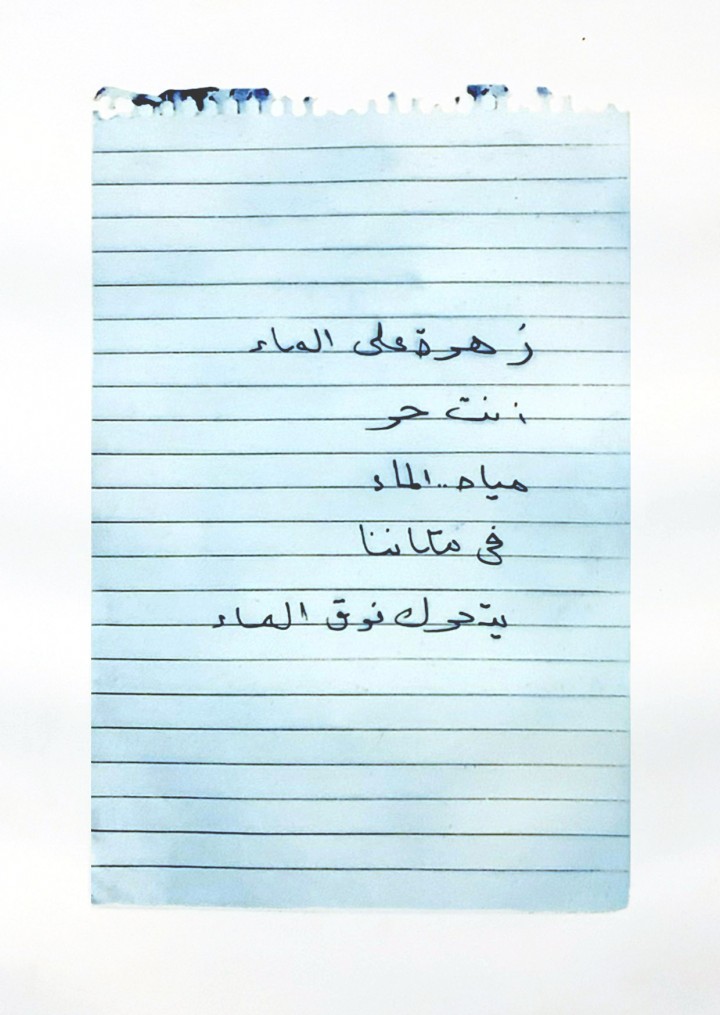 زهرة على الماء
أنت حر
مياه..الماء
في مكاننا
يتحرك فوق الماء